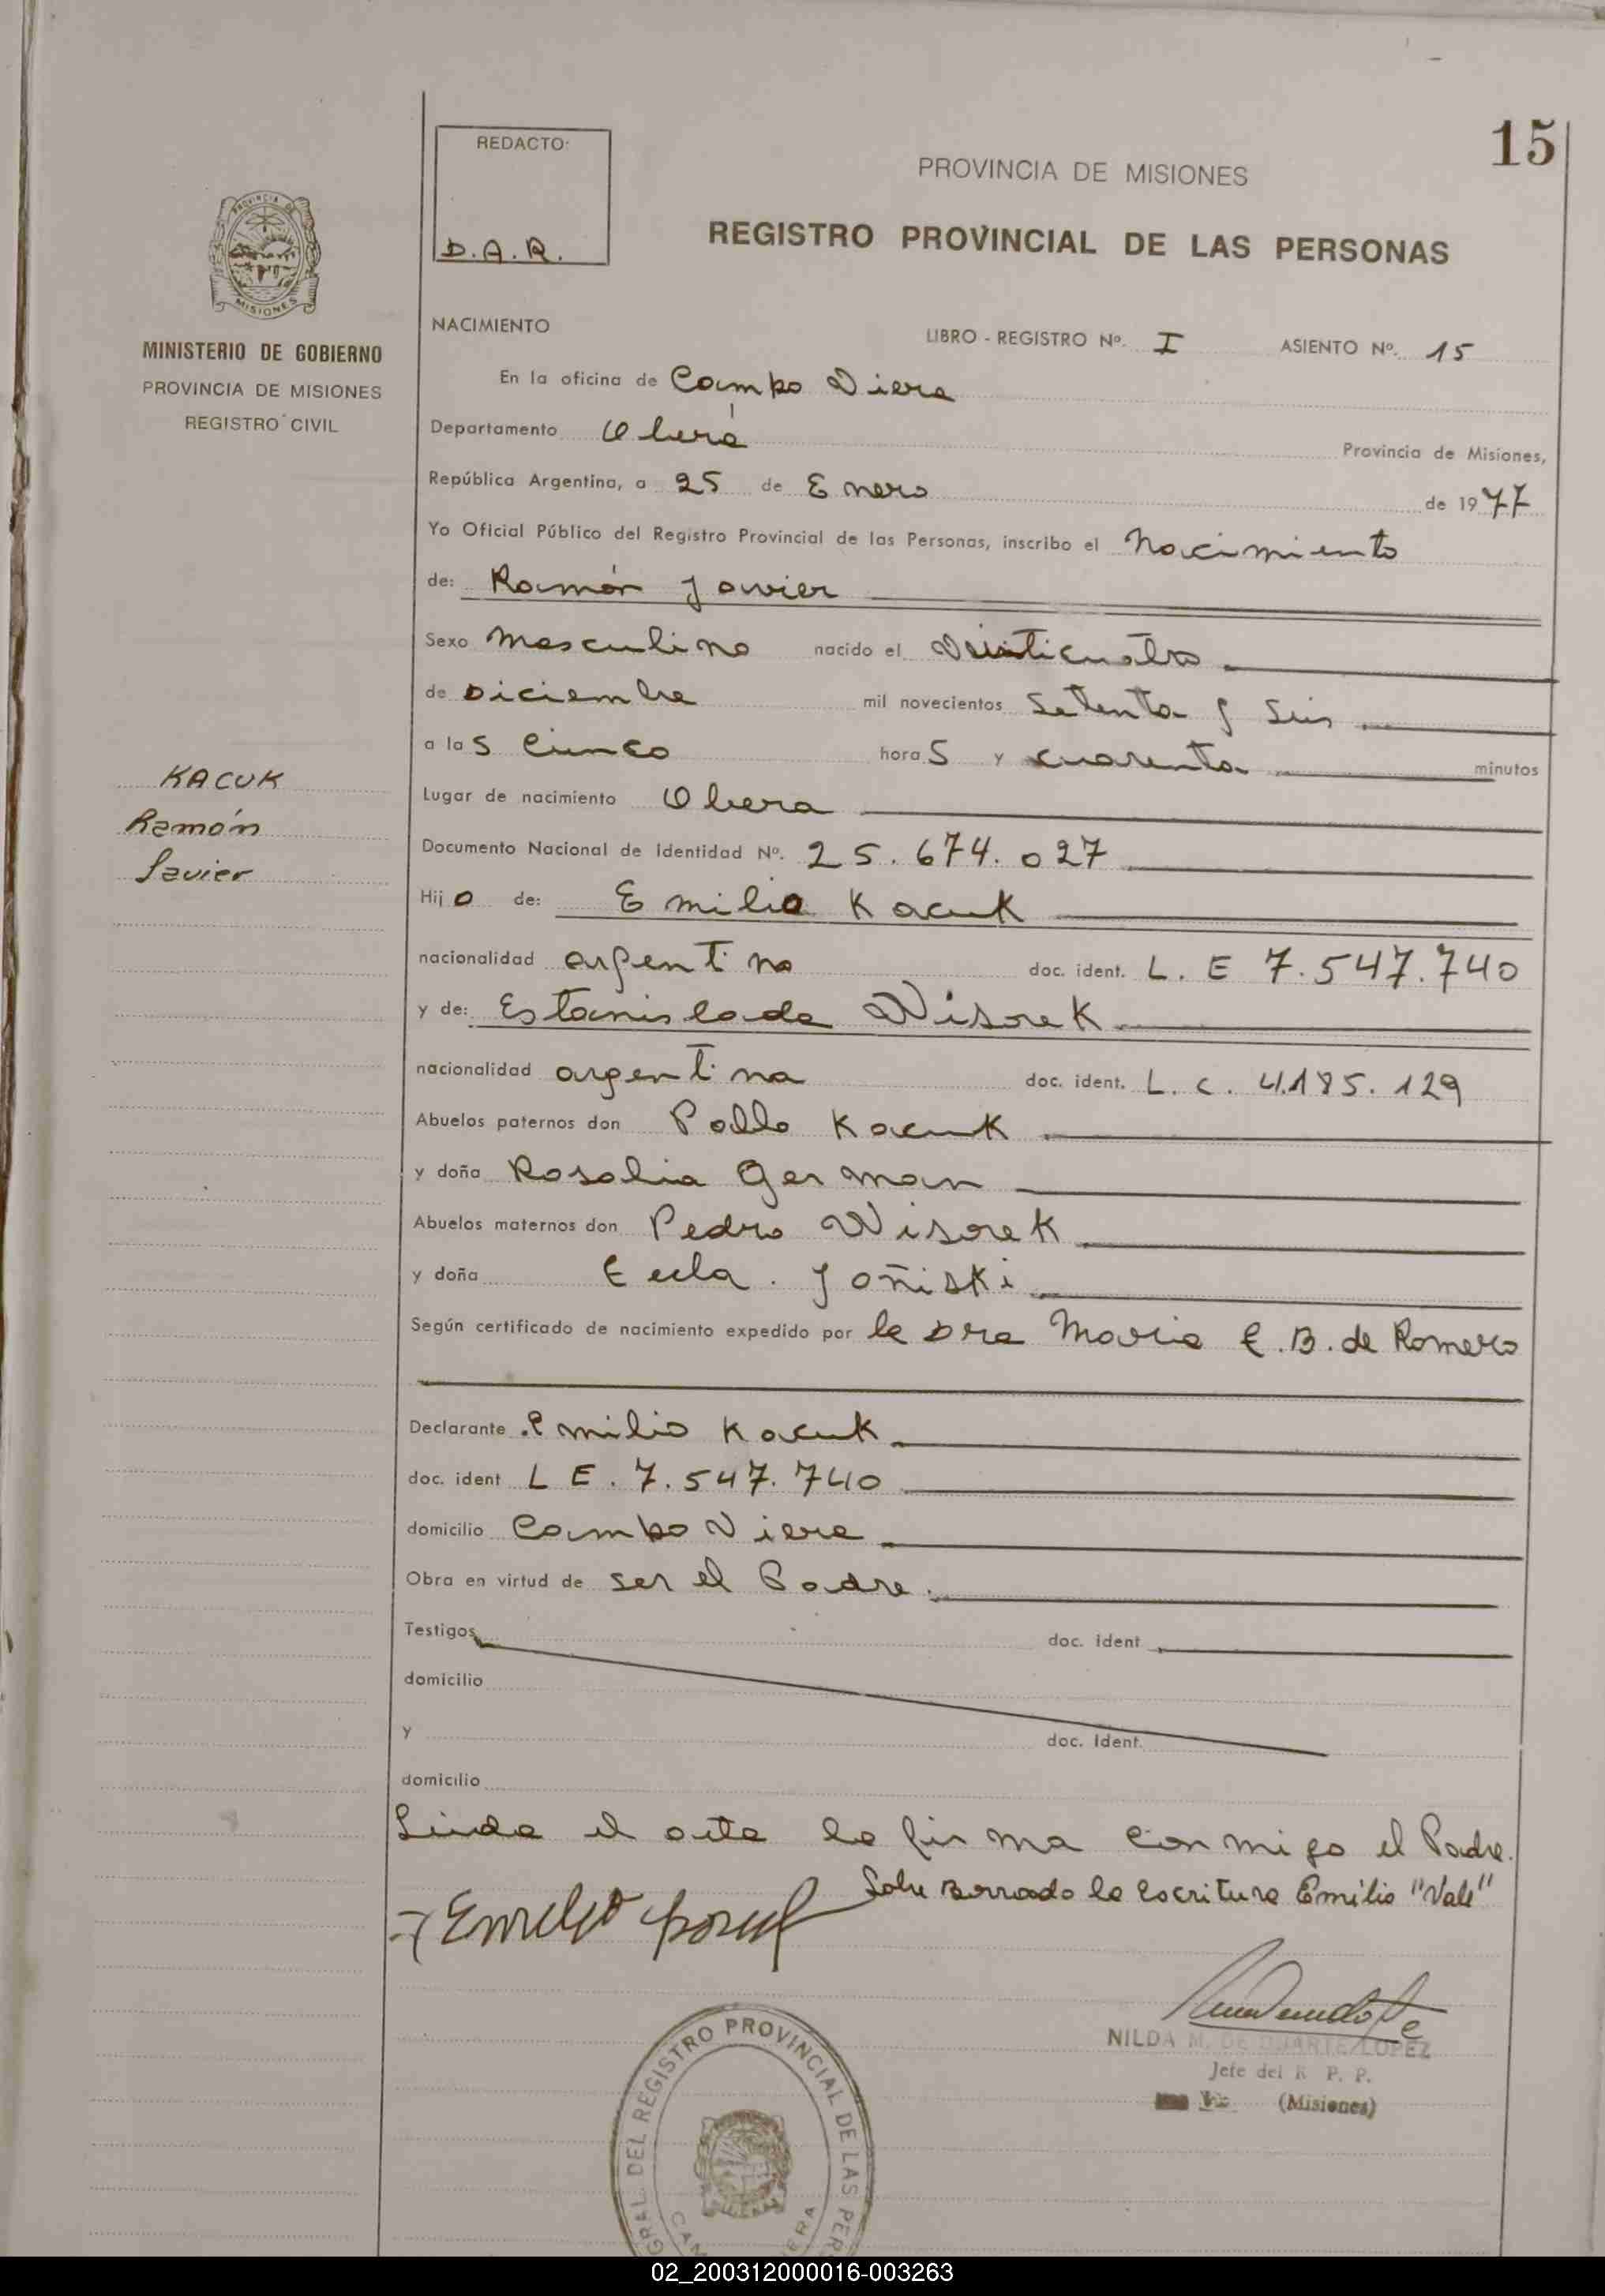 15
REDACTO:
D.A.R.
PROVINCIA DE MISIONES
REGISTRO PROVINCIAL DE LAS PERSONAS
PROVINCIA DE
MISIONES
MINISTERIO DE GOBIERNO
PROVINCIA DE MISIONES
REGISTRO CIVIL
KACUK
Ramón
Javier
NACIMIENTO LIBRO - REGISTRO Nº. I ASIENTO Nº. 15
En la oficina de Campo Viera
Departamento Oberá Provincia de Misiones,
República Argentina, a 25 de Enero de 1977
Yo Oficial Público del Registro Provincial de las Personas, inscribo el Nacimiento
de: Ramón Javier
Sexo masculino nacido el Veinticuatro
de Diciembre mil novecientos Setenta y Seis
a las Cinco horas y cuarenta minutos
Lugar de nacimiento Obera
Documento Nacional de Identidad Nº. 25.674.027
Hijo de: Emilio Kacuk
nacionalidad argentino doc. ident. L. E 7.547.740
y de: Estanislada Wisorek
nacionalidad argentina doc. ident. L. C. 4.185.129
Abuelos paternos don Pablo Kacuk
y doña Rosalia German
Abuelos maternos don Pedro Wisorek
y doña Joñiski
Según certificado de nacimiento expedido por la Dra Maria E.B. de Romero
Declarante Emilio Kacuk
doc. ident L E. 7.547.740
domicilio Campo Viera
Obra en virtud de ser el Padre.
Testigos doc. ident
domicilio
y doc. ident.
domicilio
Leida el acta la firma conmigo el Padre.
Sobre Borrado la escritura Emilio "Vale"
NILDA M. DE DUARTE LOPEZ
Jefe del R. P. P.
(Misiones)
GRAL. DEL REGISTRO PROVINCIAL DE LAS PER
02_200312000016-003263